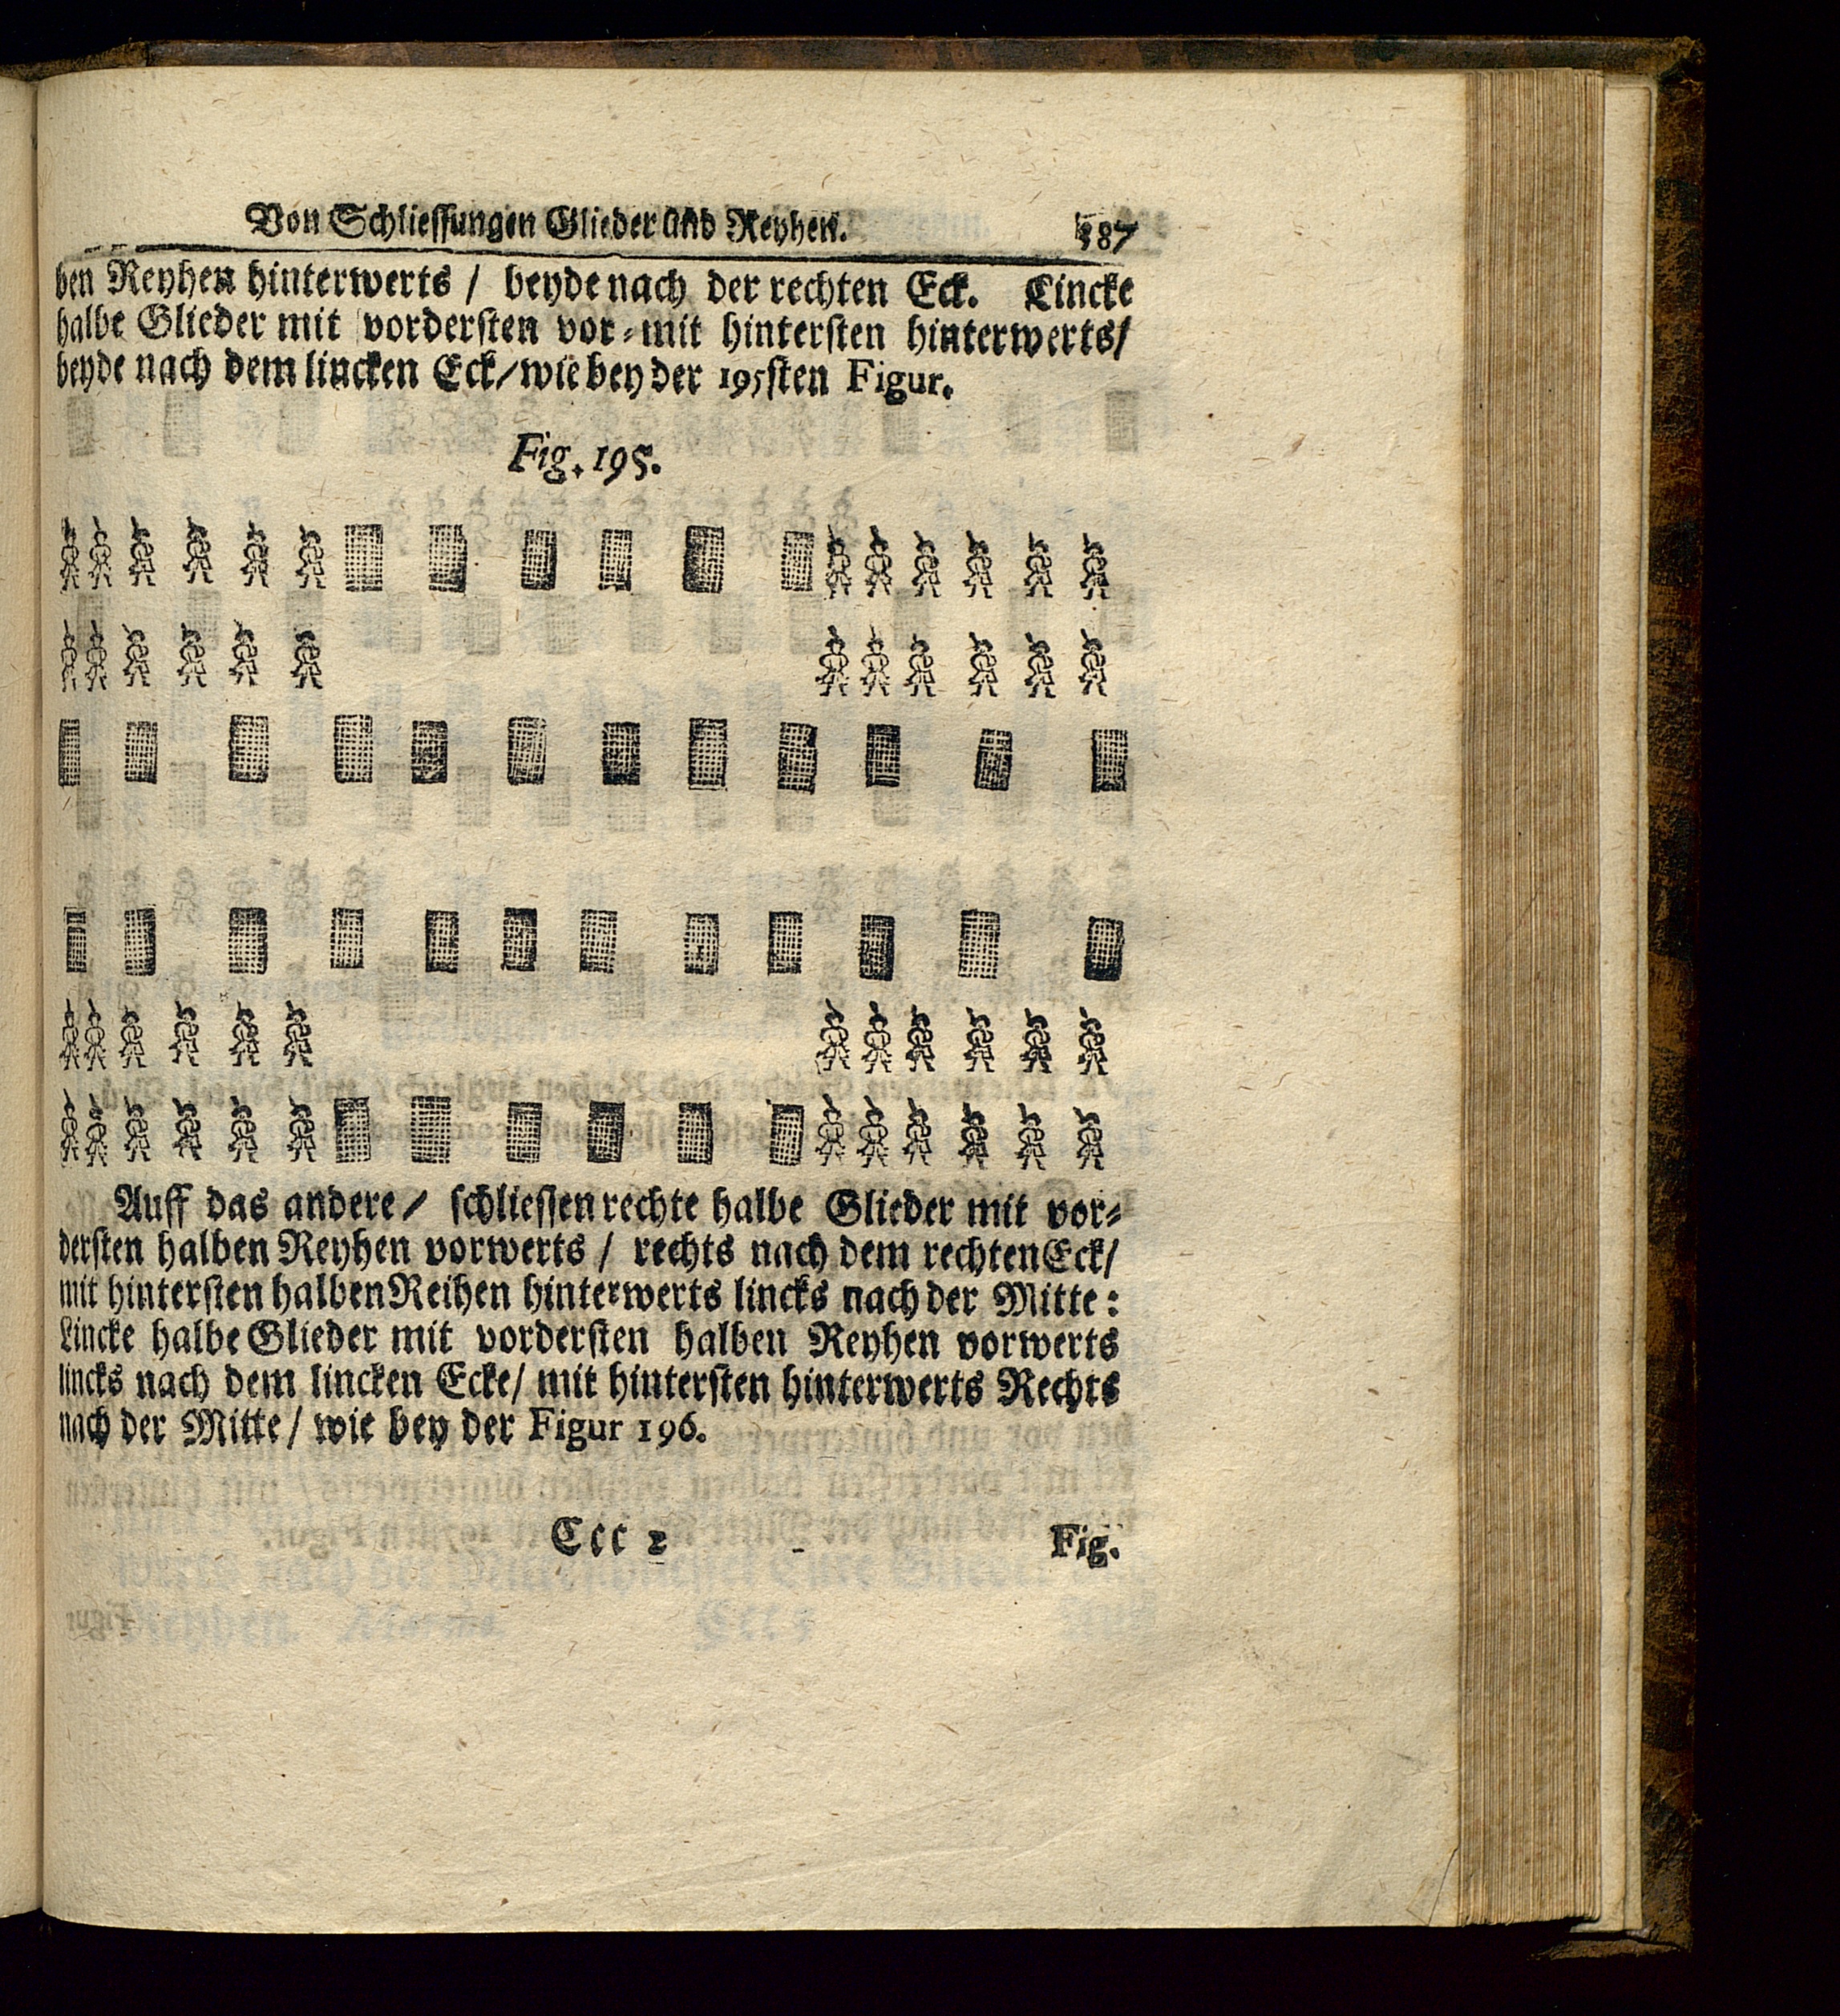 Von Schliessungen Glieder und Reyhen. 387
ben Reyhen hinterwerts / beyde nach der rechten Eck. Lincke
halbe Glieder mit vordersten vor-mit hintersten hinterwerts/
beyde nach dem lincken Eck/wie bey der 195sten Figur.
Fig. 195.
Auff das andere/ schliessen rechte halbe Glieder mit vor-
dersten halben Reyhen vorwerts / rechts nach dem rechten Eck/
mit hintersten halben Reihen hinterwerts lincks nach der Mitte:
Lincke halbe Glieder mit vordersten halben Reyhen vorwerts
lincks nach dem lincken Ecke/ mit hintersten hinterwerts Rechts
nach der Mitte/ wie bey der Figur 196.
Ccc 2 Fig.